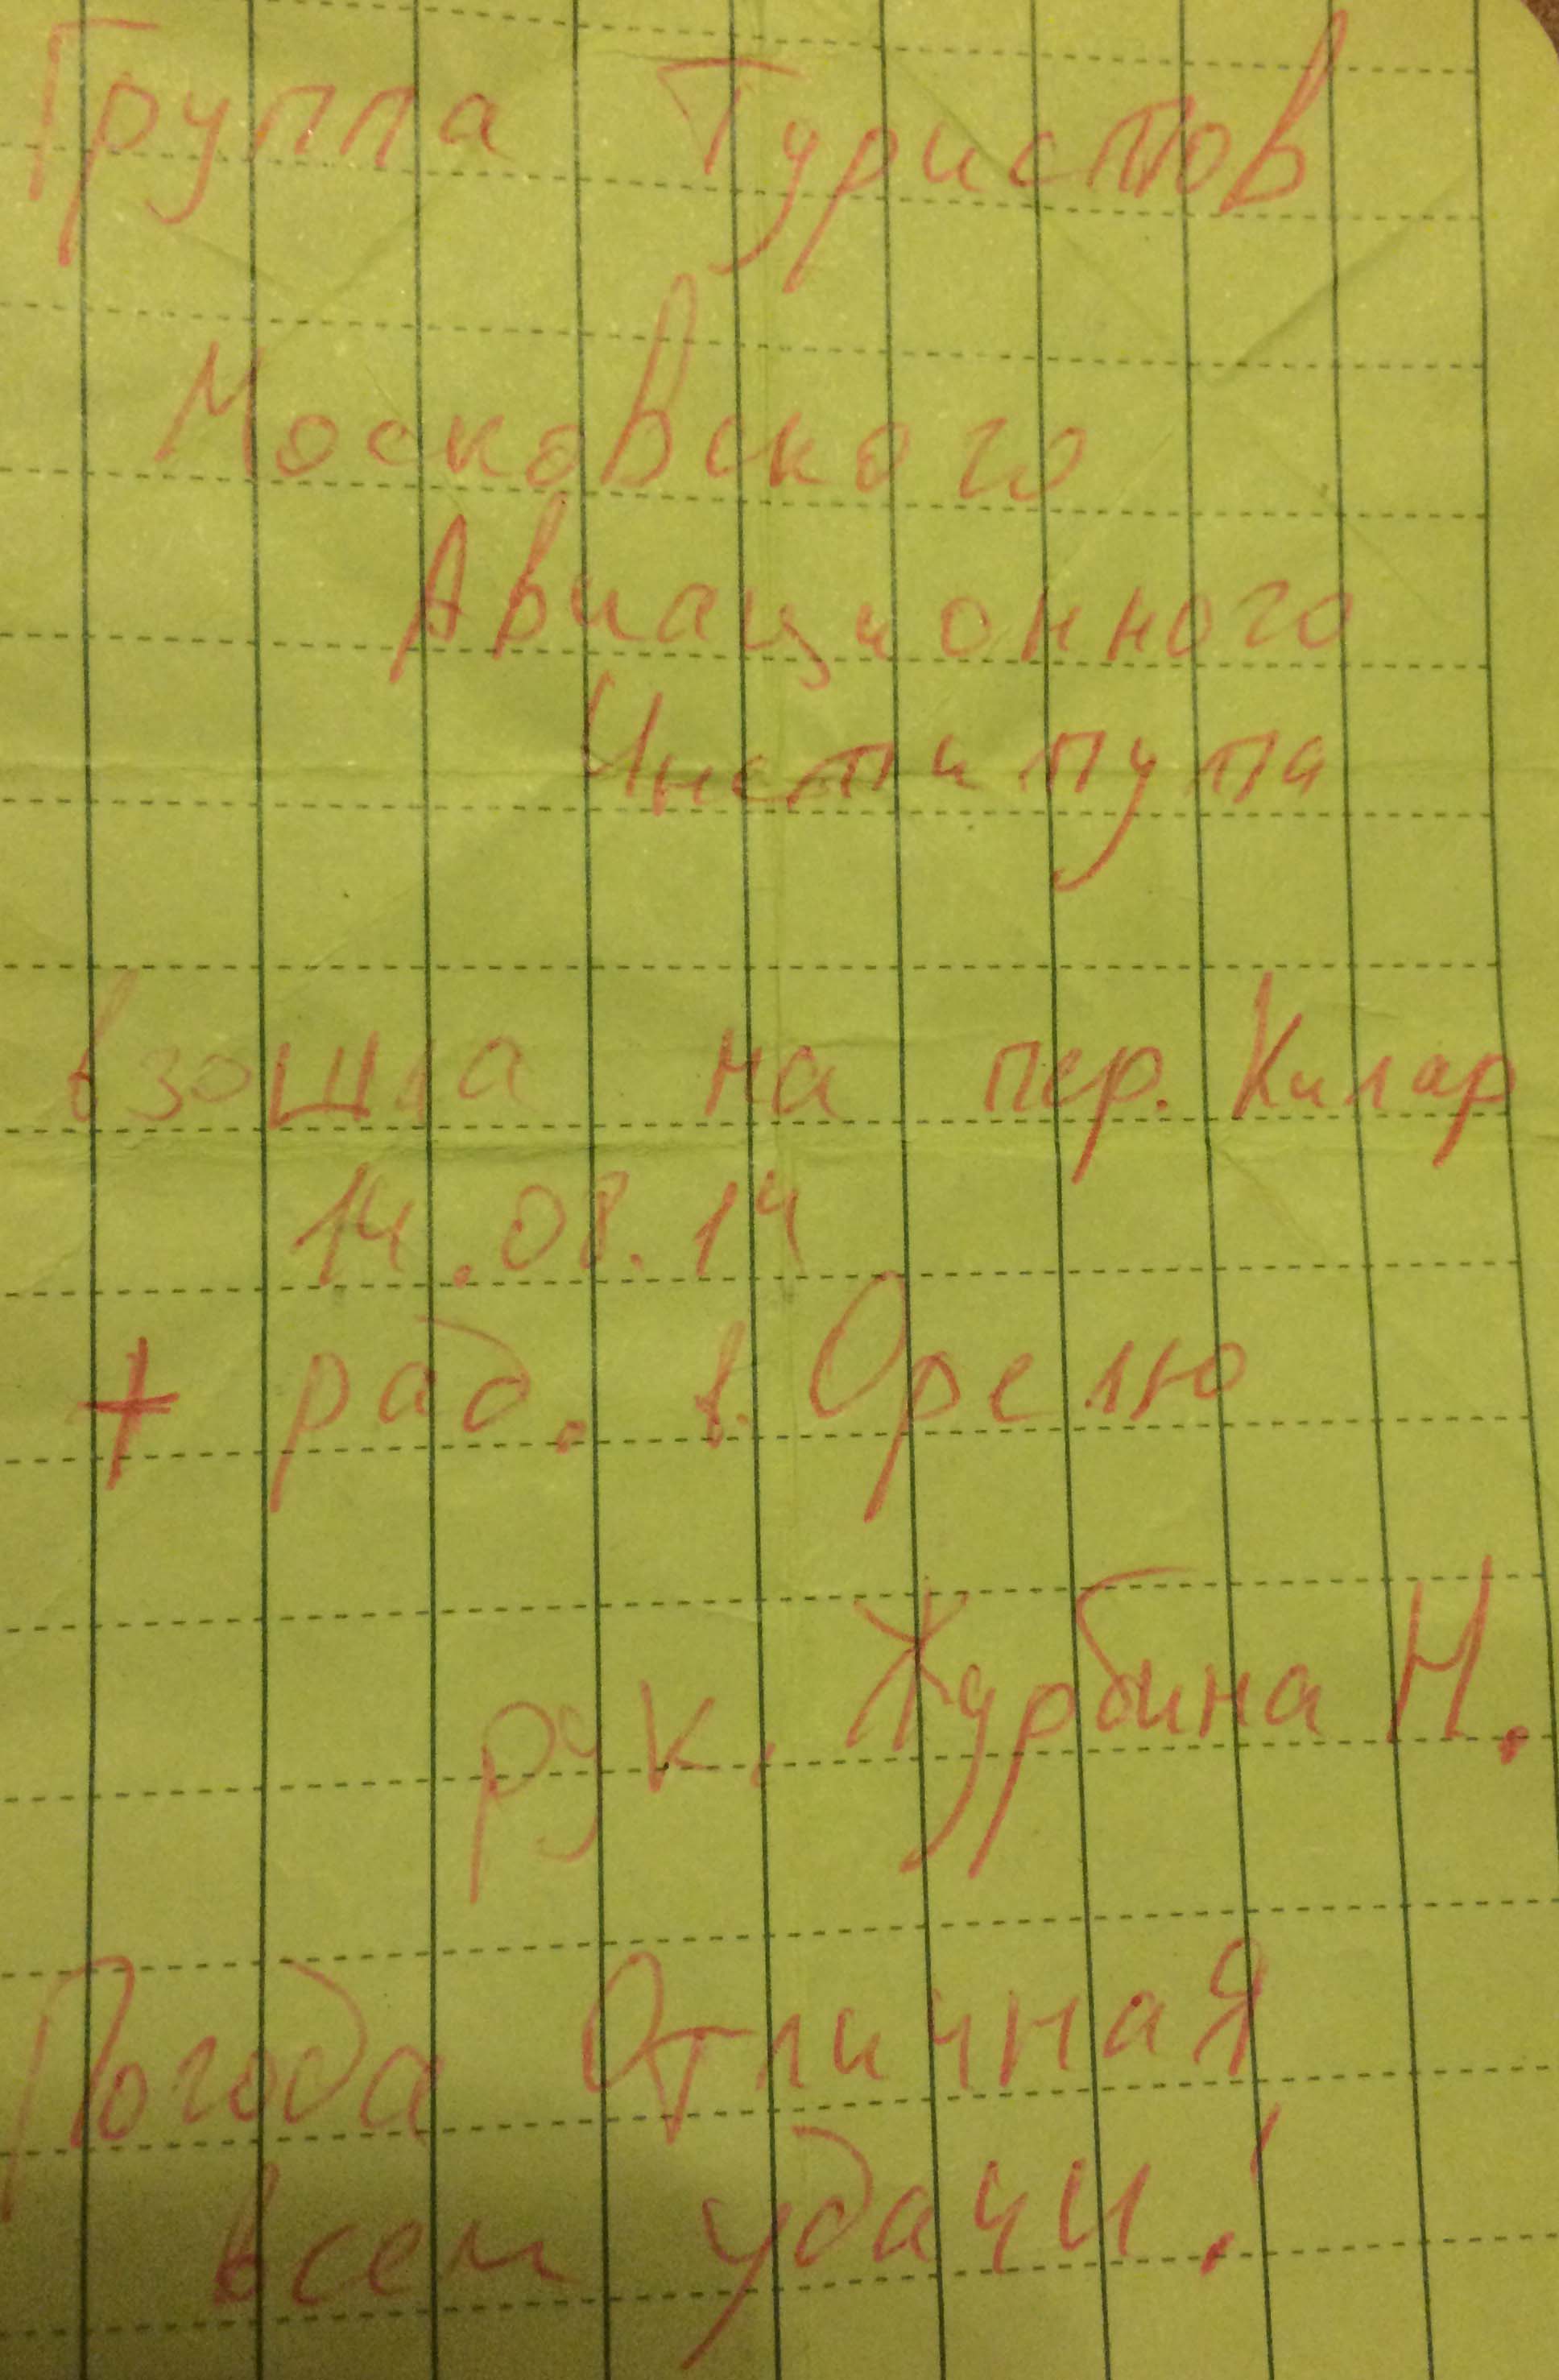 Группа Туристов
Московского
Авиационного
Института
взошла на пер. Килар
14.08.14
+ рад. в. Орелю
рук. Журбина Н.
Погода Отличная
всем удачи!